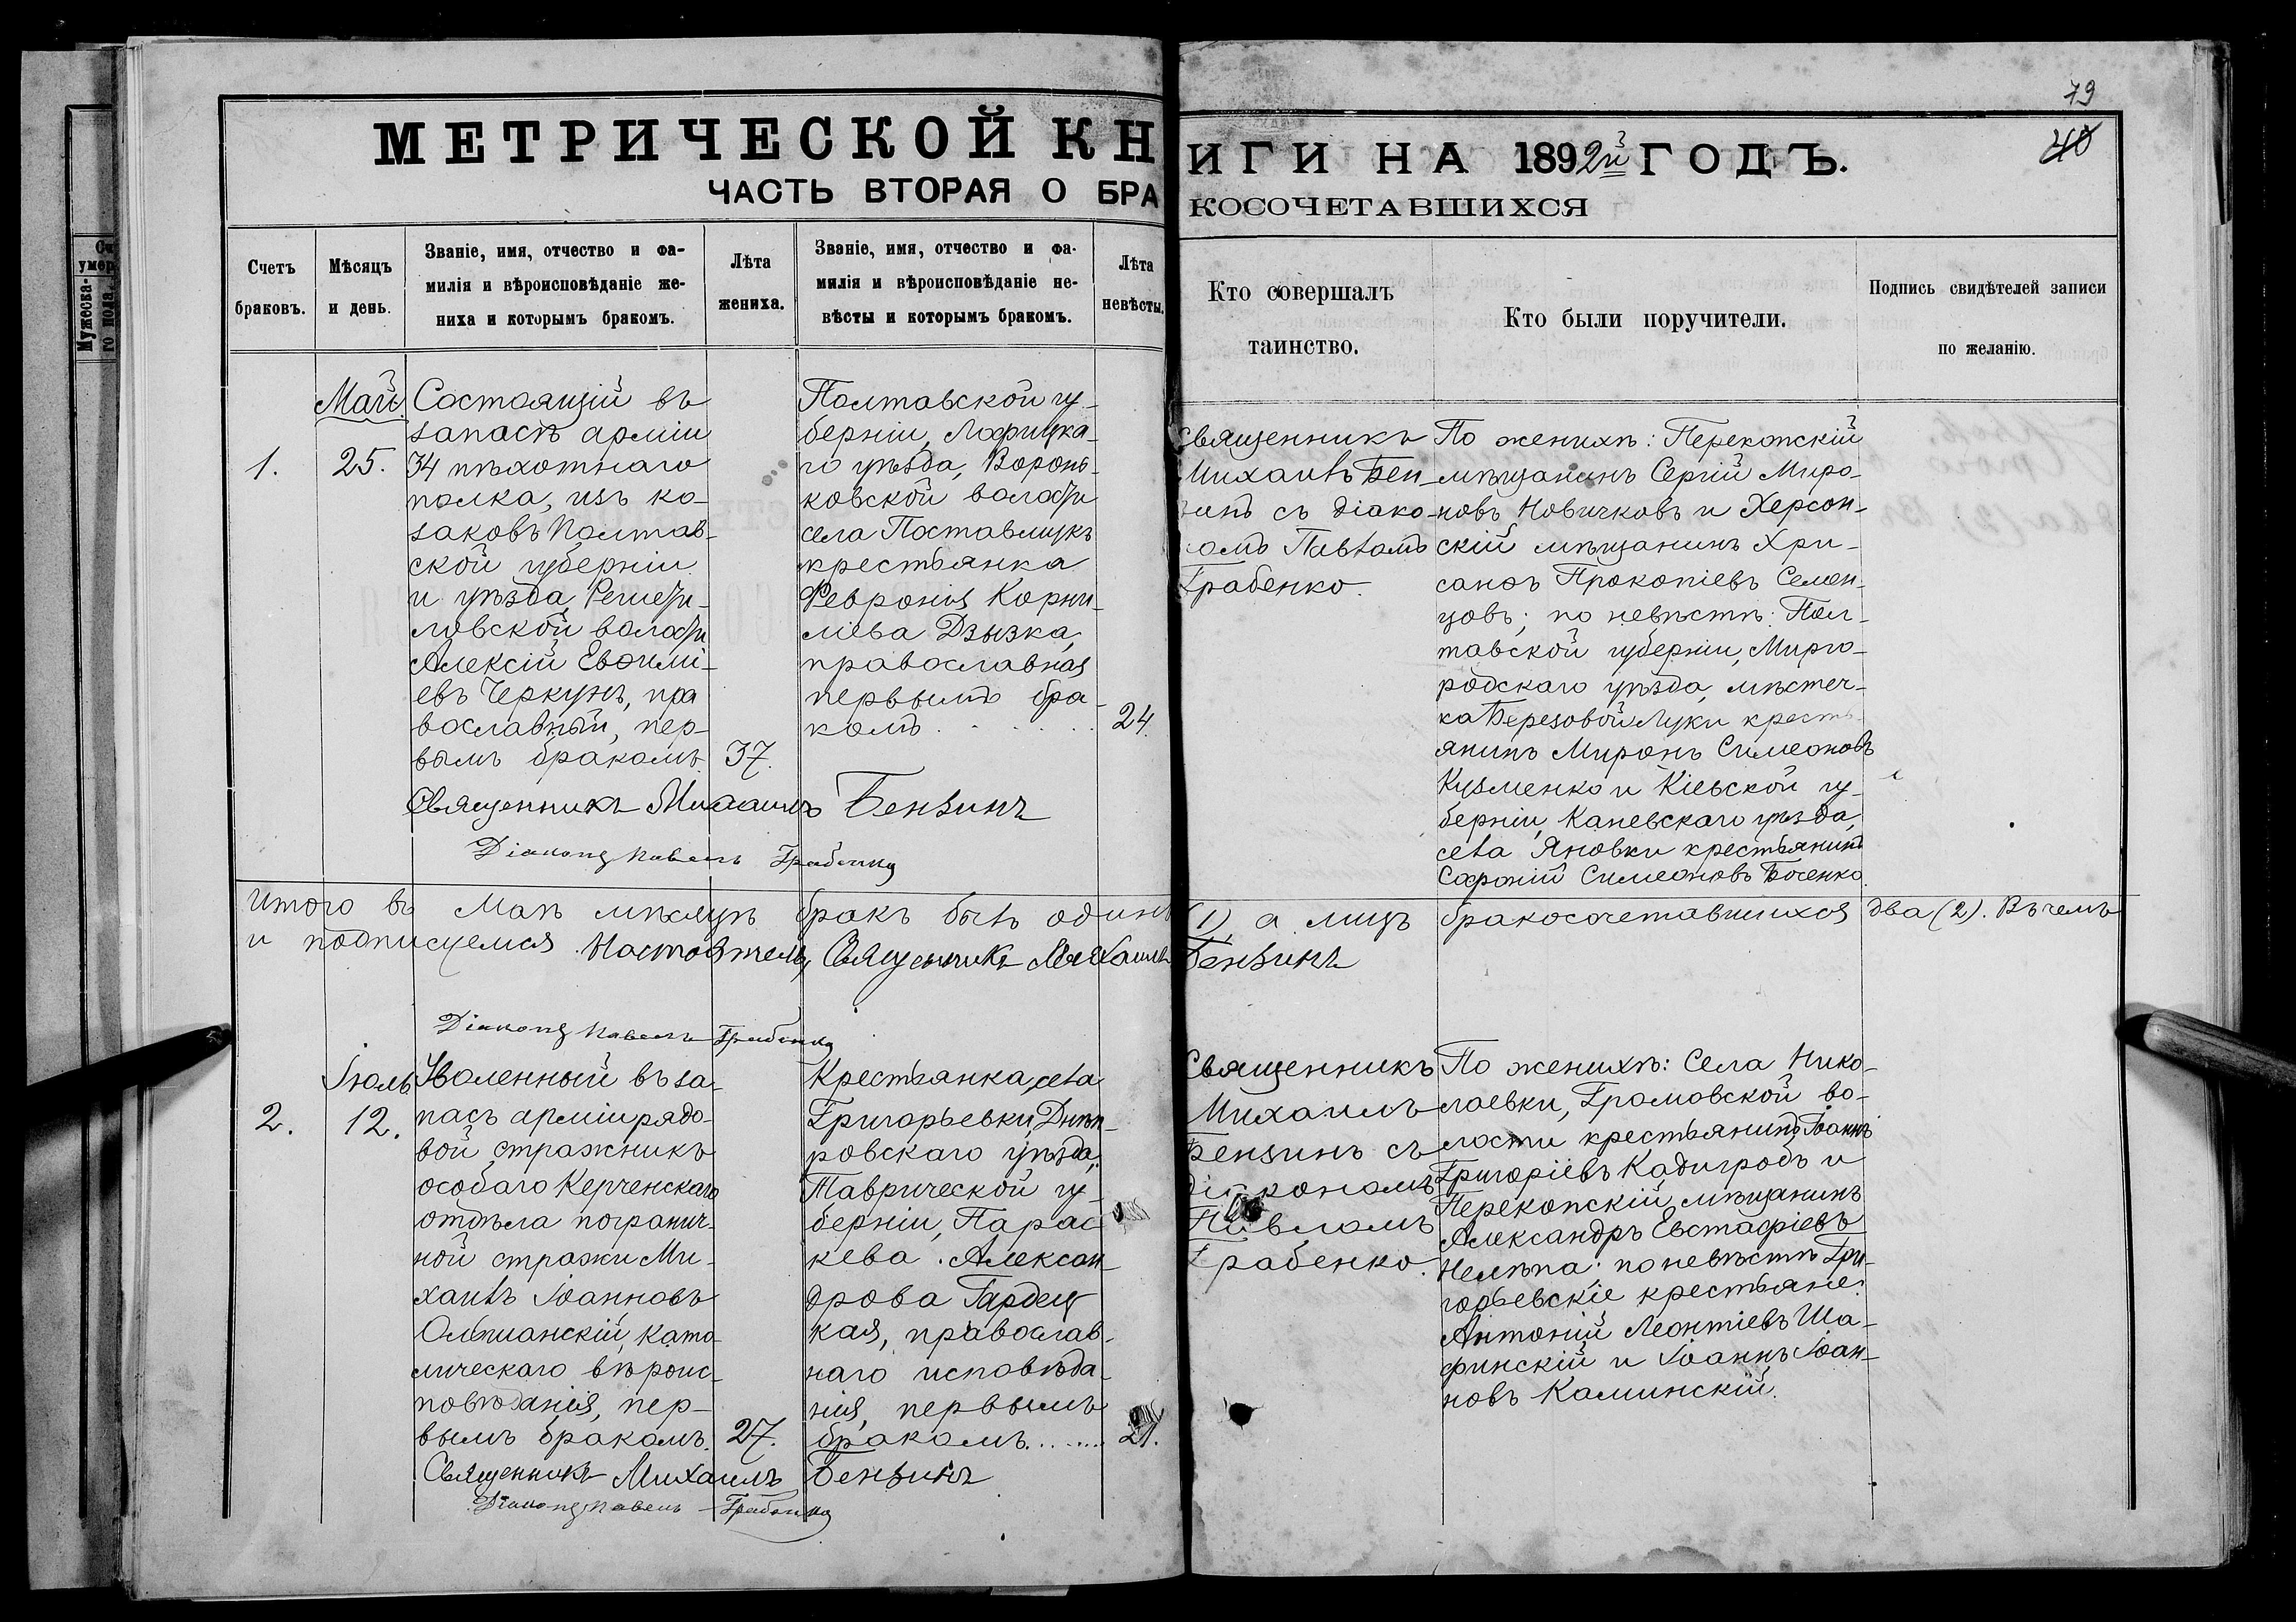 79
40
МЕТРИЧЕСКОЙ КНИГИ НА 1892й ГОДЪ.
ЧАСТЬ ВТОРАЯ О БРАКОСОЧЕТАВШИХСЯ
Счетъ
браковъ.
Мѣсяцъ
и день.
Званіе, имя, отчество и фа-
милія и вѣроисповѣданіе же-
ниха и которымъ бракомъ.
Лѣта
жениха.
Званіе, имя, отчество и фа-
милія и вѣроисповѣданіе не-
вѣсты и которымъ бракомъ.
Лѣта
невѣсты.
Кто совершалъ
таинство.
Кто были поручители.
Подпись свидѣтелей записи
по желанію.
1.
Май.
25.
Состоящій въ
запасѣ арміи
34 пѣхотнаго
полка, изъ ко-
заковъ Полтав-
ской губерніи
и уѣзда, Решети-
ловской волости
Алексій Евѳимі-
евъ Черкунъ, пра
вославный, пер-
вымъ бракомъ.
37.
Полтавской гу-
берніи, Лофицка-
го уѣзда, Воронь-
ковской волости
села Поставлукъ
крестьянка
Февронія Корни-
ліева Дзызка,
православная
первымъ бра-
комъ
24.
Священникъ
Михаилъ Бен-
зинъ съ діако-
номъ Павломъ
Грабенко.
По женихѣ: Перекопскій
мѣщанинъ Сергій Миро-
новъ Новичковъ и Херсон-
скій мѣщанинъ Хри-
санѳъ Прокопіевъ Семен-
цовъ; по невѣстѣ: Пол-
тавской губерніи, Мирго-
родскаго уѣзда, мѣстеч-
ка Березовой Луки кресть-
янинъ Миронъ Симеоновъ
Кузменко и Кіевской гу-
берніи, Каневскаго уѣзда,
села Яновки крестьянинъ
Софроній Симеоновъ Боченко.
Священникъ Михаилъ Бензинъ
Діаконъ Павелъ Грабенко
Итого въ Маѣ мѣсяцѣ бракъ былъ одинъ (1), а лицъ бракосочетавшихся два (2). Въ чемъ
и подписуемся. Настоятель, Священникъ Михаилъ Бензинъ
Діаконъ Павелъ Грабенко
2.
Іюль
12.
Уволенный въ за-
пасъ арміи рядо-
вой, стражникъ
особаго Керченскаго
отдѣла погранич-
ной стражи Ми-
хаилъ Іоанновъ
Олтианскій, като-
лическаго вѣроис-
повѣданія, пер-
вымъ бракомъ.
27.
Крестьянка села
Григорьевки, Днѣп-
ровскаго уѣзда,
Таврической гу-
берніи, Парас-
кева Алексан-
дрова Гардец
кая, православ-
наго исповѣда-
нія, первымъ
бракомъ........
21.
Священникъ
Михаилъ
Бензинъ съ
діакономъ
Павломъ
Грабенко.
По женихѣ: Села Нико-
лаевки, Громовской во-
лости крестьянинъ Іоаннъ
Григоріевъ Кадигробъ и
Перекопскій мѣщанинъ
Александръ Евстафіевъ
Нелѣпа: по невѣстѣ Гри-
горьевскіе крестьяне:
Антоній Леонтіевъ Ша-
финскій и Іоаннъ Іоан-
новъ Каминскій.
Священникъ Михаилъ Бензинъ
Діаконъ Павелъ Грабенко